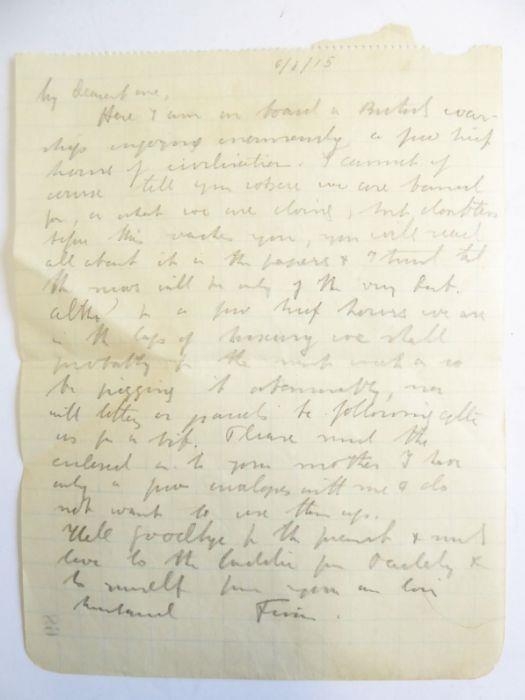 6/8/15
My dearest one,
Here I am on board a British war-
ship enjoying immensely a few brief
hours of civilisation. I cannot of
course tell you where we are bound
for, or what we are doing, but doubtless
before this reaches you, you will read
all about it in the papers & I trust that
the news will be only of the very best.
Altho' for a few brief hours we are
in the laps of luxury we shall
probably for the next week or so
be pigging it abominably, nor
will letters or parcels be following after
us for a bit. Please send the
enclosed on to your mother I have
only a few envelopes with me & do
not want to use them up.
Well goodbye for the present & much
love to the laddie from Daddy &
to yourself from your own loving
husband